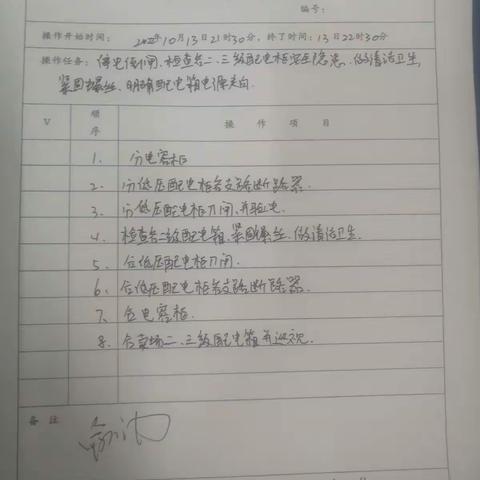 编号：
操作开始时间： 2022年10月13日21时30分，终了时间：13日22时30分
操作任务：停电倒闸．检查各二．三级配电柜安全隐患．做清洁卫生，
紧固螺丝．明确配电箱电源去向．
V 顺序 操作项目
1. 分电容柜
2. 分低压配电柜各支路断路器．
3. 分低压配电柜刀闸．并验电．
4. 检查各二级配电箱．紧固螺丝．做清洁卫生．
5. 合低压配电柜刀闸．
6. 合低压配电柜各支路断路器．
7. 合电容柜．
8. 合卖场二．三级配电箱并巡视．
备注